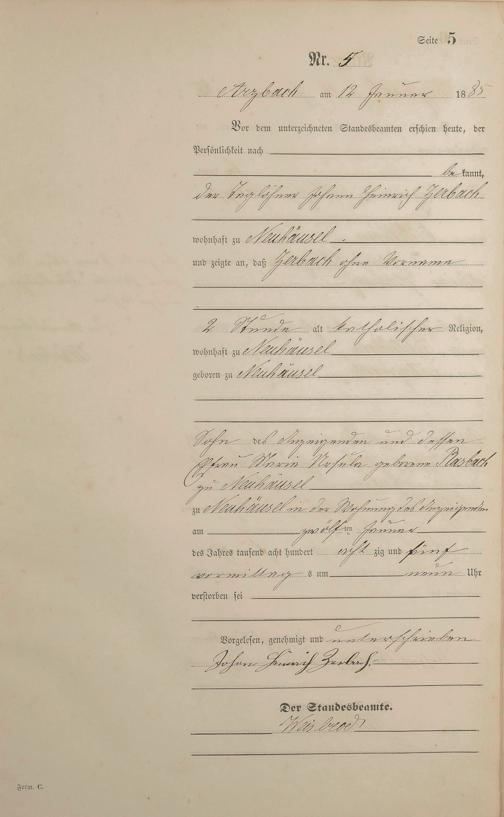 Seite 5
Nr. 5
Arzbach am 12 Januar 1885
Vor dem unterzeichneten Standesbeamten erschien heute, der
Persönlichkeit nach
bekannt,
der Taglöhner Johann Heinrich Zerbach
wohnhaft zu Neuhäusel
und zeigte an, daß Zerbach ohne Vorname
2 Stunde alt katholischer Religion,
wohnhaft zu Neuhäusel
geboren zu Neuhäusel
Sohn des Anzeigenden und dessen
Ehefrau Maria Ursula geborene Rasbach
zu Neuhäusel
zu Neuhäusel in der Wohnung des Anzeigenden
am zwölften Januar
des Jahres tausend acht hundert achtzig und fünf
vormittags um neun Uhr
verstorben sei
Vorgelesen, genehmigt und unterschrieben
Johan Heinrich Zerbach.
Der Standesbeamte.
Weisbrod
Form. C.